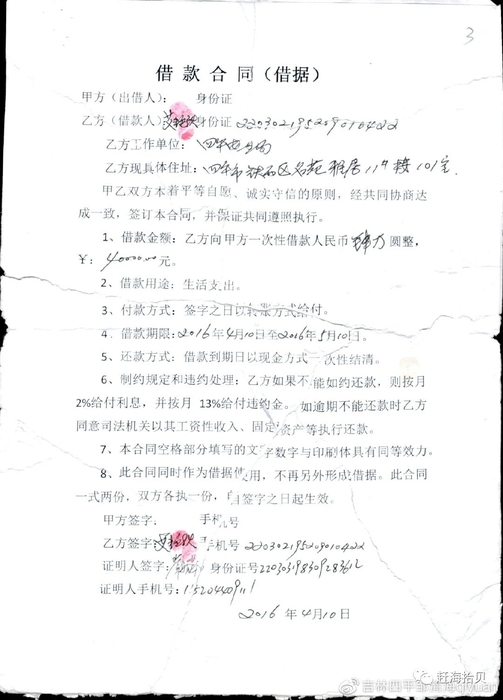 3
借 款 合 同（借据）
甲方（出借人）： 身份证
乙方（借款人） 身份证
乙方工作单位：四平
乙方现具体住址：四平市铁西区名苑雅居11#楼101室.
甲乙双方本着平等自愿、诚实守信的原则，经共同协商达
成一致，签订本合同，并保证共同遵照执行。
1、借款金额：乙方向甲方一次性借款人民币 圆整，
￥： 元。
2、借款用途：生活支出。
3、付款方式：签字之日以转账方式给付。
4、借款期限：2016年4月10日至2016年5月10日。
5、还款方式：借款到期日以现金方式一次性结清。
6、制约规定和违约处理：乙方如果不能如约还款，则按月
2%给付利息，并按月 13%给付违约金。如逾期不能还款时乙方
同意司法机关以其工资性收入、固定资产等执行还款。
7、本合同空格部分填写的文字数字与印刷体具有同等效力。
8、此合同同时作为借据使用，不再另外形成借据。此合同
一式两份，双方各执一份，自签字之日起生效。
甲方签字： 手机号
乙方签字 手机号
证明人签字： 身份证号
证明人手机号：
2016 年4月10日
赶海拾贝